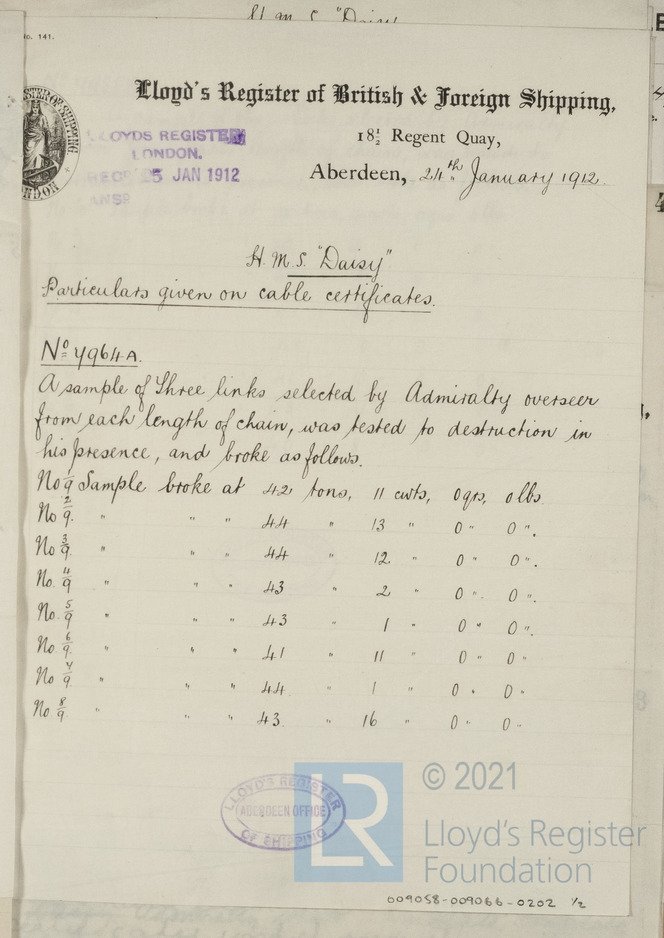 H.M.S. "Daisy"
No. 141.
Lloyd's Register of British & Foreign Shipping,
18½ Regent Quay,
Aberdeen, 24th January 1912.
LLOYDS REGISTER
LONDON.
RECD 25 JAN 1912
ANSD
H.M.S. "Daisy"
Particulars given on cable certificates.
No 7964A.
A sample of Three links selected by Admiralty overseer
from each length of chain, was tested to destruction in
his presence, and broke as follows.
No 1/9 Sample broke at 42 tons, 11 cwts, 0 qrs, 0 lbs.
No 2/9. " " " 44 " 13 " 0 " 0 ".
No 3/9 " " " 44 " 12 " 0 " 0 ".
No. 4/9 " " " 43 " 2 " 0 ". 0 ".
No. 5/9 " " " 43 " 1 " 0 " 0 ".
No. 6/9. " " " 41 " 11 " 0 " 0 "
No. 7/9. " " " 44. " 1 " 0 " 0 "
No. 8/9. " " " 43. " 16 " 0 " 0 "
LLOYD'S REGISTER
ABERDEEN OFFICE
OF SHIPPING
LR
© 2021
Lloyd's Register
Foundation
009058-009066-0202 1/2